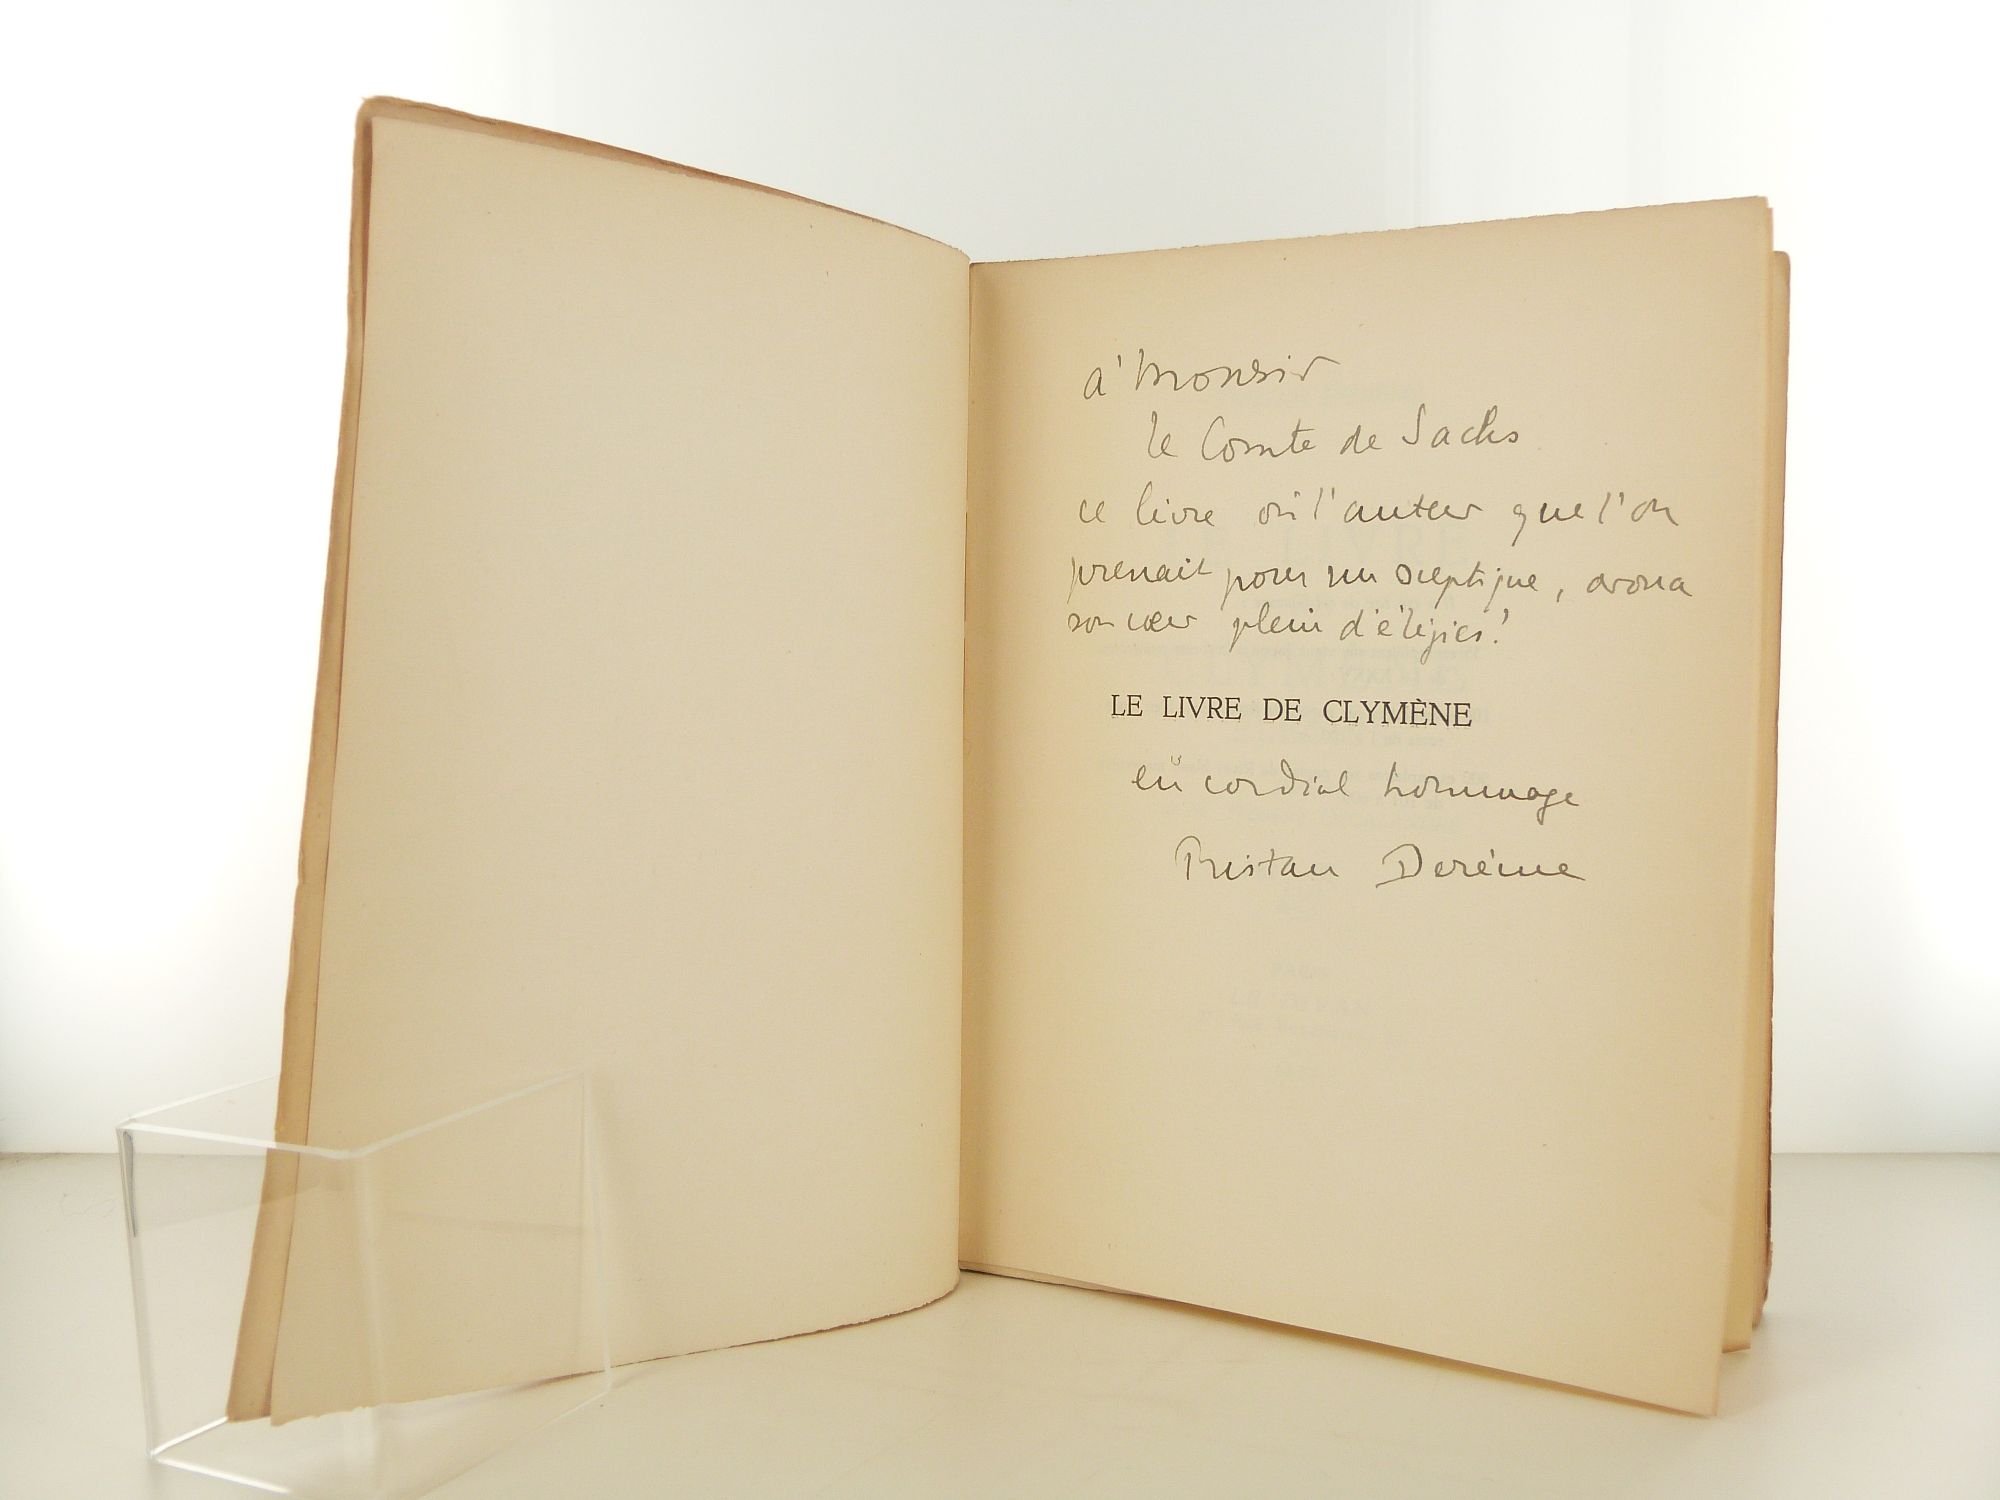 à Monsieur
le Comte de Sachs
ce livre où l'auteur que l'on
prenait pour un sceptique, avoua
son cœur plein d'élégies!
LE LIVRE DE CLYMÈNE
en cordial hommage
Tristan Derème